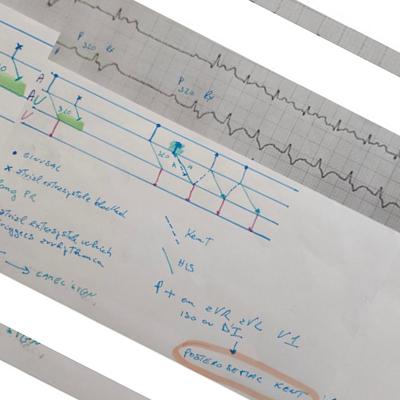 P 320 Rs
P 320 Rs
A
AV
V
320
• SINUSAL
x atrial extrasystole blocked
long PR
atrial extrasystole which
triggers arrhythmia
→ CAMEL SIGN
320
Kent
HIS
P + on aVR aVL V1
iso on DI
POSTEROSEPTAL KENT